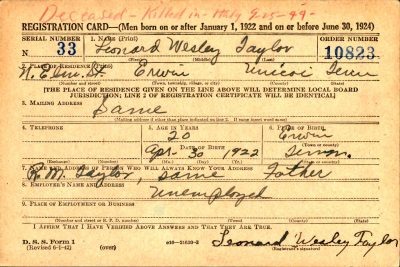 REGISTRATION CARD—(Men born on or after January 1, 1922 and on or before June 30, 1924)
SERIAL NUMBER 1. NAME (Print) ORDER NUMBER
33 Leonard Wesley Taylor 10823
(First) (Middle) (Last)
2. PLACE OF RESIDENCE (Print)
N. Elm St. Erwin Unicoi Tenn
(Number and street) (Town, township, village, or city) (County) (State)
[THE PLACE OF RESIDENCE GIVEN ON THE LINE ABOVE WILL DETERMINE LOCAL BOARD
JURISDICTION; LINE 2 OF REGISTRATION CERTIFICATE WILL BE IDENTICAL]
3. MAILING ADDRESS
Same
(Mailing address if other than place indicated on line 2. If same insert word same)
4. TELEPHONE 5. AGE IN YEARS 6. PLACE OF BIRTH
20 Erwin
DATE OF BIRTH (Town or county)
Apr. 30 1922 Tenn.
(Exchange) (Number) (Mo.) (Day) (Yr.) (State or country)
7. NAME AND ADDRESS OF PERSON WHO WILL ALWAYS KNOW YOUR ADDRESS
R. M. Taylor, same Father
8. EMPLOYER'S NAME AND ADDRESS
Unemployed
9. PLACE OF EMPLOYMENT OR BUSINESS
(Number and street or R. F. D. number) (Town) (County) (State)
I AFFIRM THAT I HAVE VERIFIED ABOVE ANSWERS AND THAT THEY ARE TRUE.
D. S. S. Form 1 (over) Leonard Wesley Taylor
(Revised 6-9-42) (Registrant's signature)